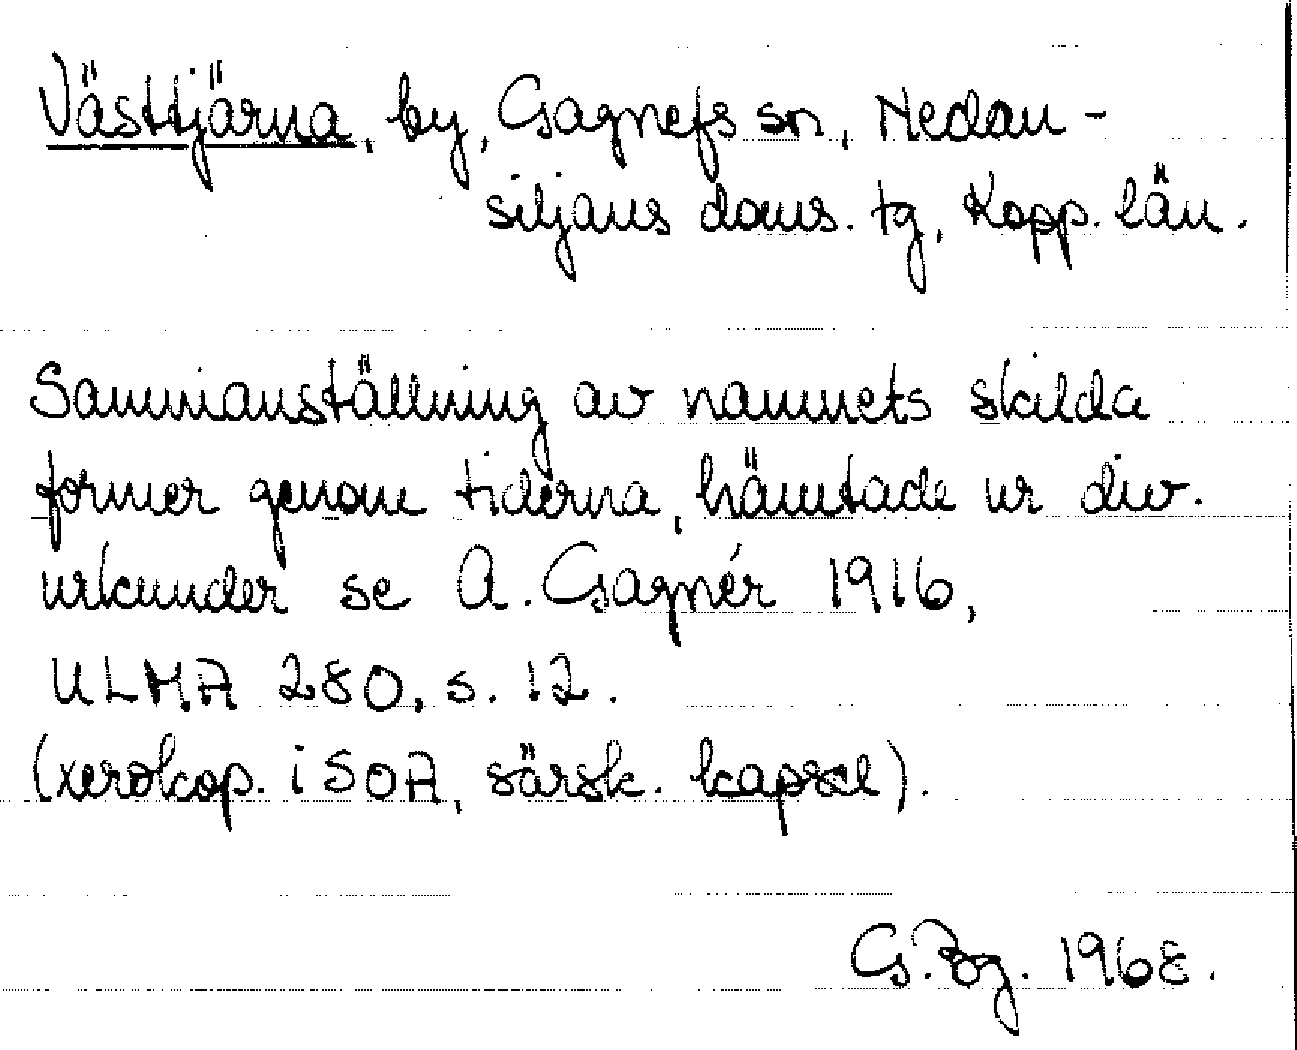 Västtjärna, by, Gagnefs sn, Nedan-
siljans doms. tg, Kopp. län.
Sammanställning av namnets skilda
former genom tiderna, hämtade ur div.
urkunder se A. Gagnér 1916,
ULMA 280, s. 12.
(xerokop. i SOA, särsk. kapsel).
G. Bg. 1968.